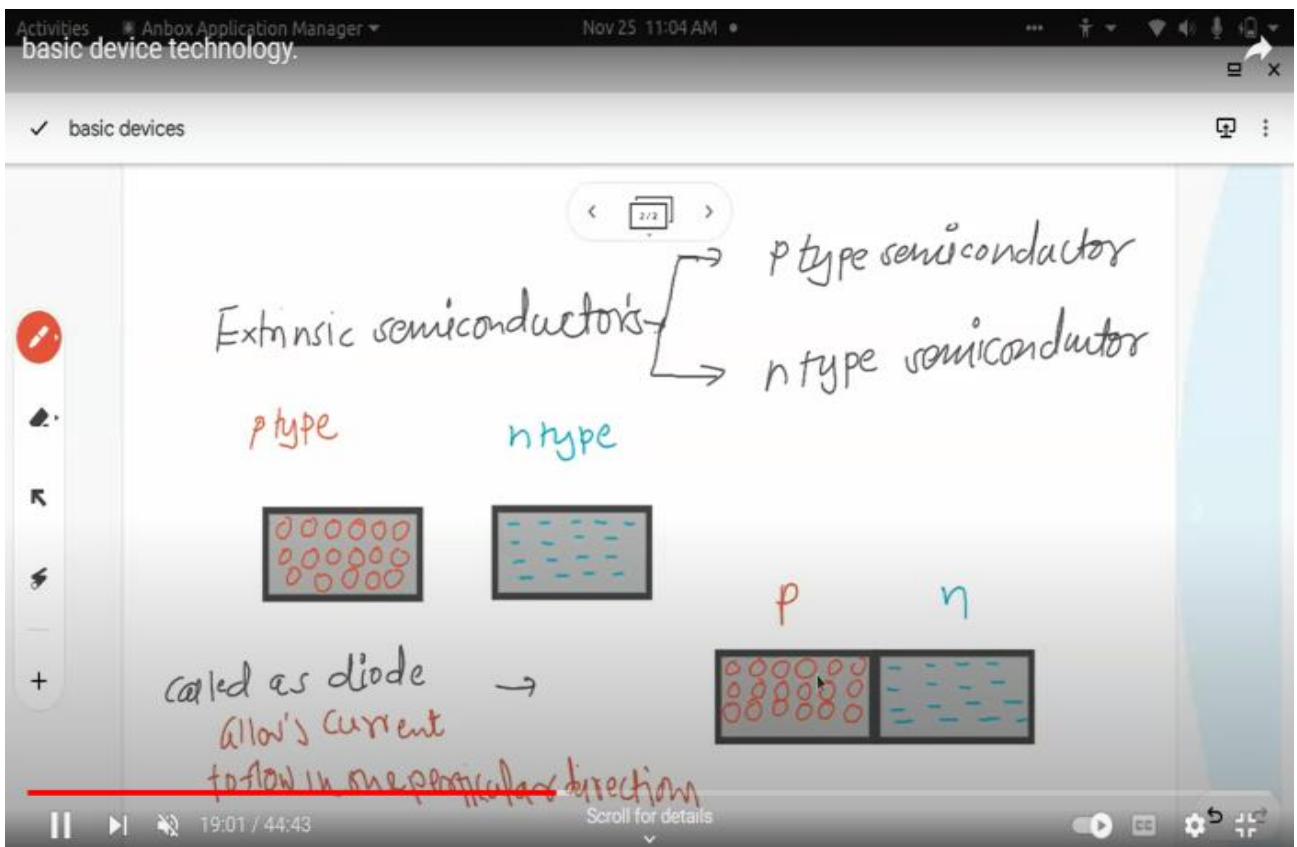 Activities Anbox Application Manager Nov 25 11:04 AM
basic device technology.
basic devices
2/2
p type semiconductor
Extrinsic semiconductor's
n type semiconductor
p type n type
p n
called as diode
allow's current
to flow in one perticular direction
19:01 / 44:43 Scroll for details CC